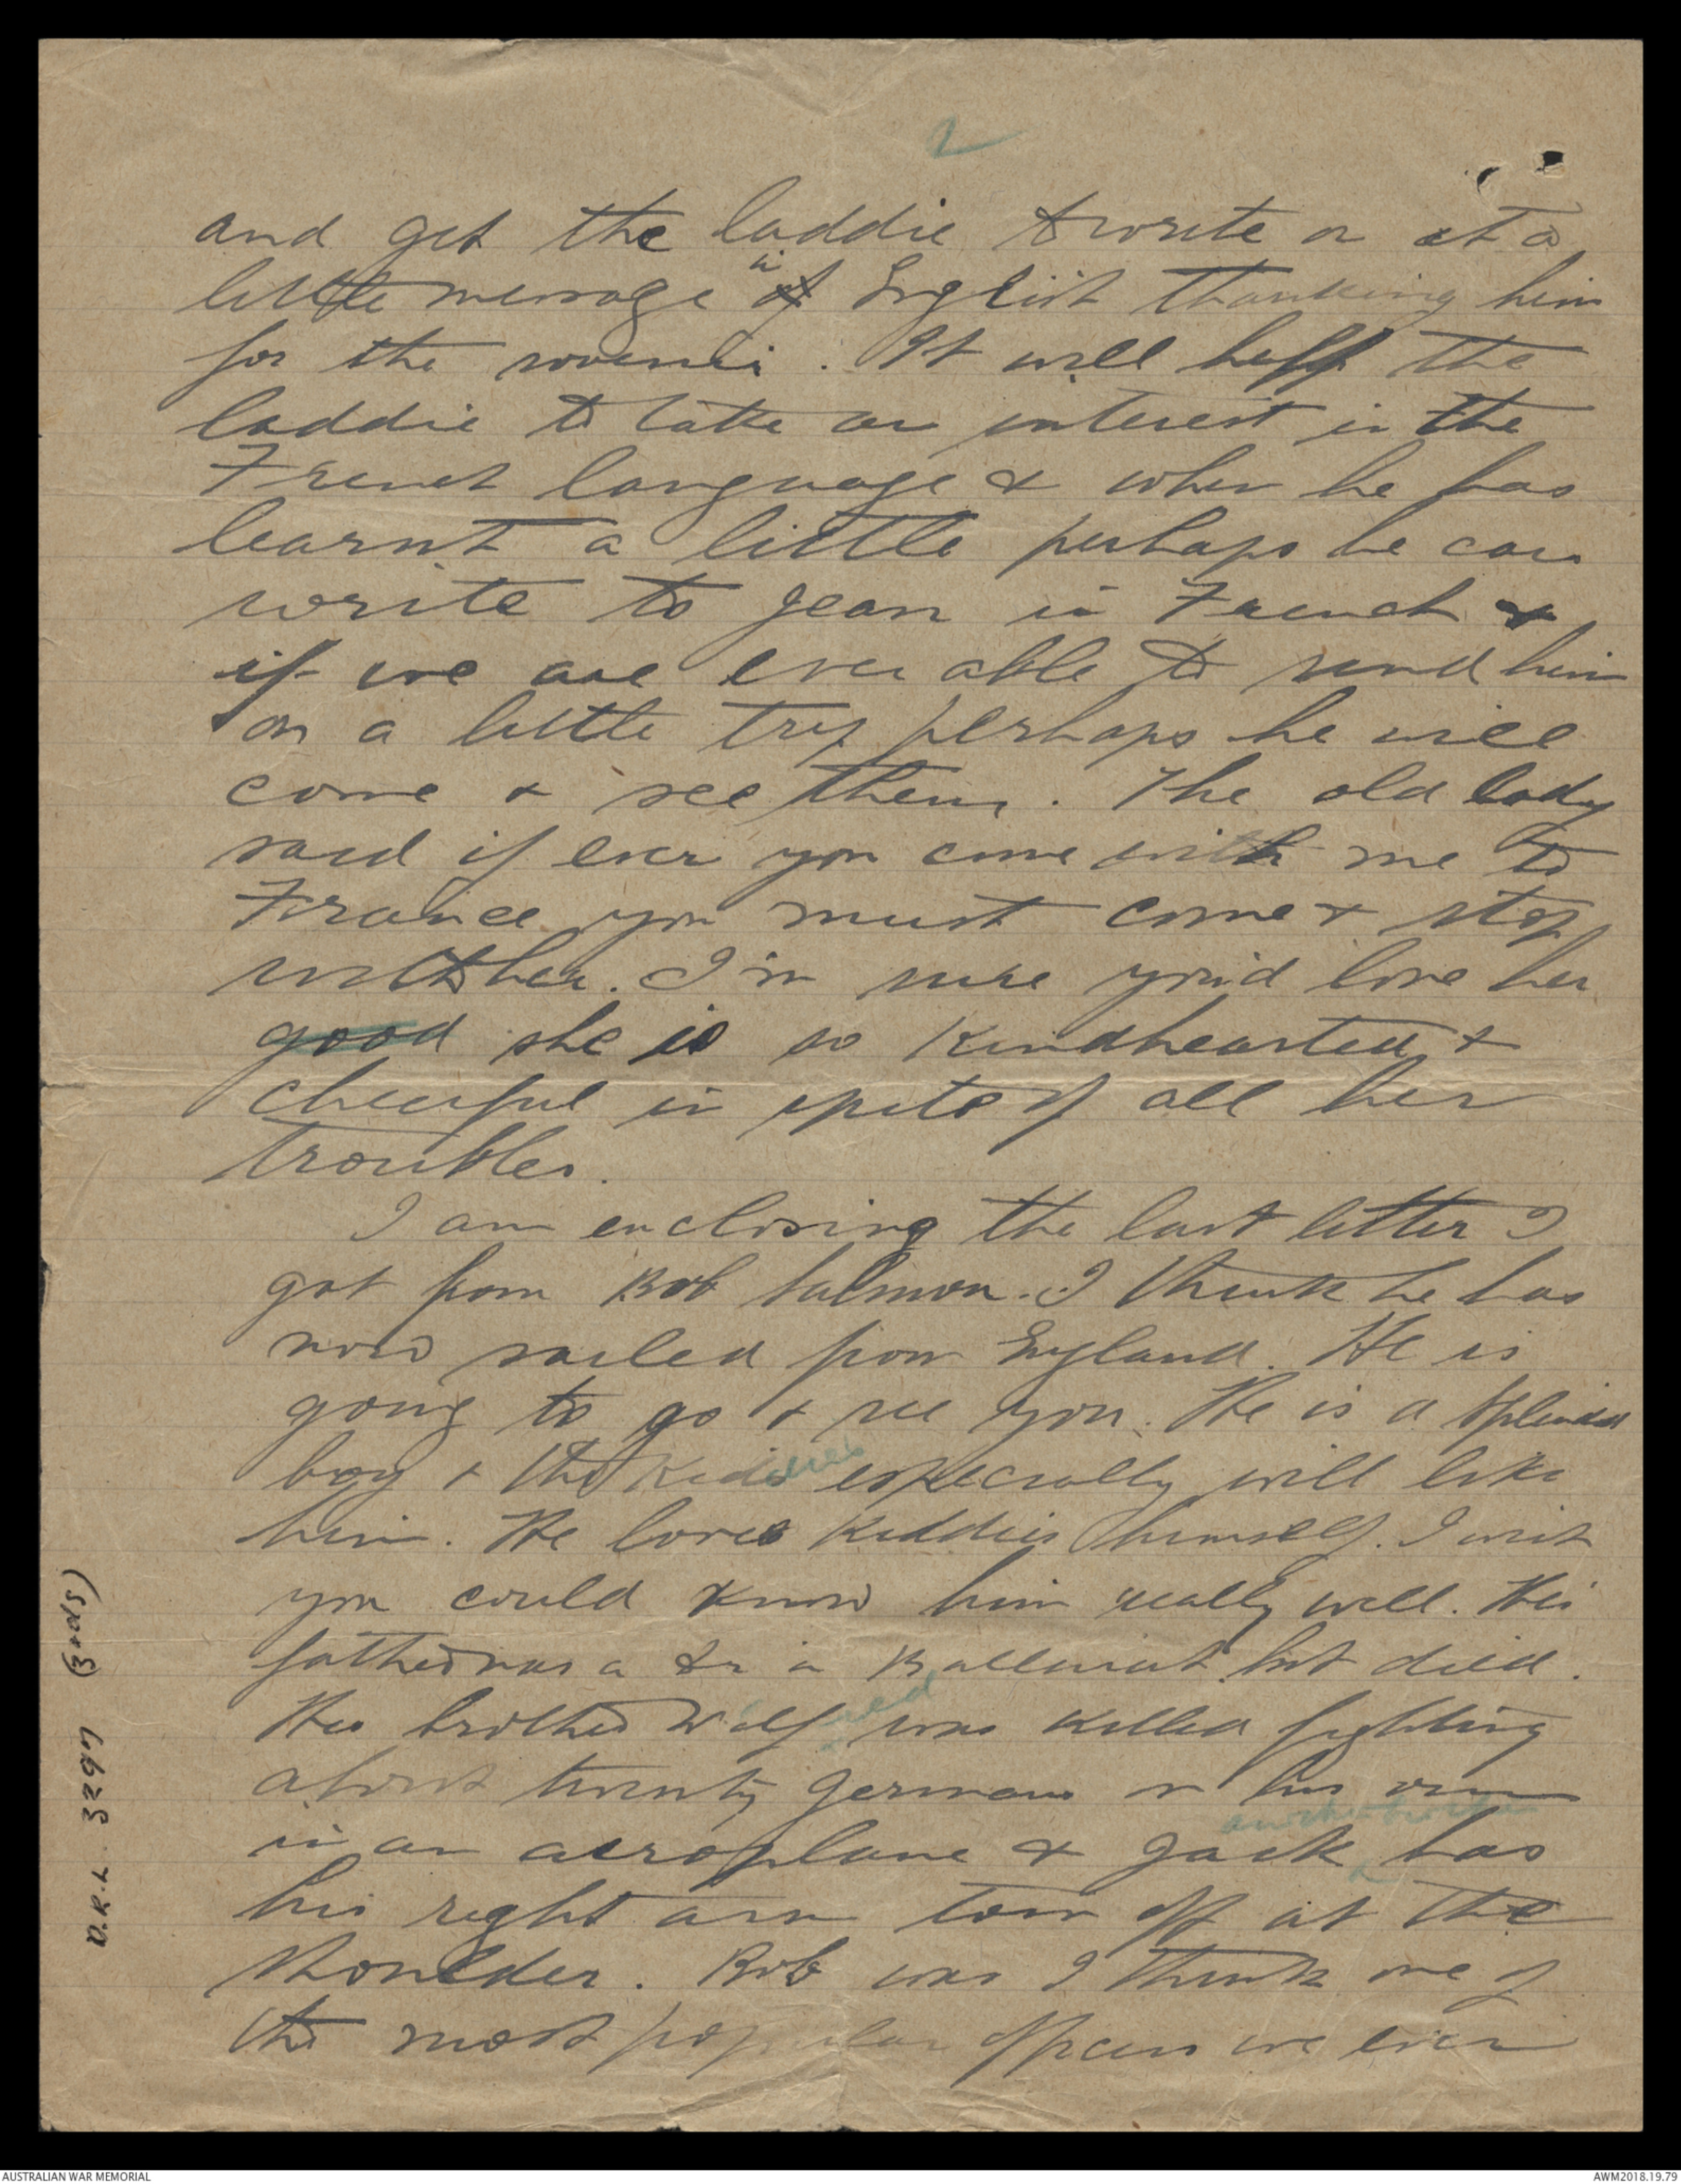 2
and get the laddie to write on it a
little message in English thanking him
for the souvenir. It will help the
laddie to take an interest in the
French language & when he has
learnt a little perhaps he can
write to Jean in French &
if we are ever able to send him
on a little trip perhaps he will
come & see them. The old lady
said if ever you come with me to
France you must come & stop
with her. I'm sure you'd love her
good she is so kindhearted &
cheerful in spite of all her
troubles.
I am enclosing the last letter I
got from Bob Salmon. I think he has
now sailed from England. He is
going to go & see you. He is a splendid
boy & the kiddies especially will like
him. He loves kiddies himself. I wish
you could know him really well. His
father was a Dr in but died.
His brother Wilfred was killed fighting
about twenty Germans on his own
another brother
in an aeroplane & Jack has
his right arm torn off at the
shoulder. Bob was I think one of
the most popular officers we ever
D.R.L. 3297 (3rd S)
AUSTRALIAN WAR MEMORIAL
AWM2018.19.79